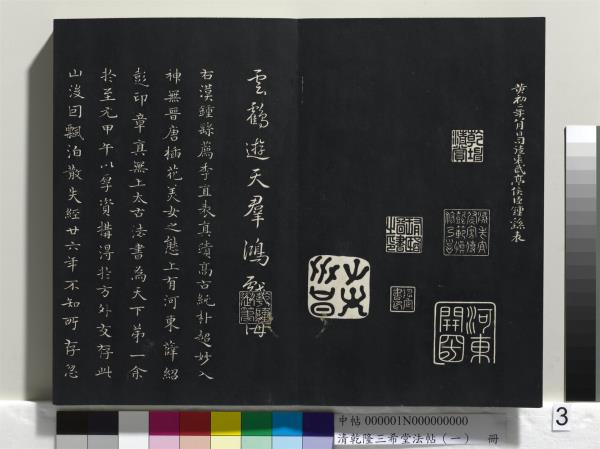 黃初二年八月日司徒東武亭侯臣鍾繇表
乾隆
河東
雲鶴遊天羣鴻戲海
右漢鍾繇薦季直表真蹟高古純朴超妙入
神無晉唐插花美女之態上有河東薛紹
彭印章真無上太古法書為天下第一余
於至元甲午以厚資購得於方外交存此
山後因飄泊散失經廿六年不知所存忽
中帖 000001N000000000
清乾隆三希堂法帖（一） 冊
3